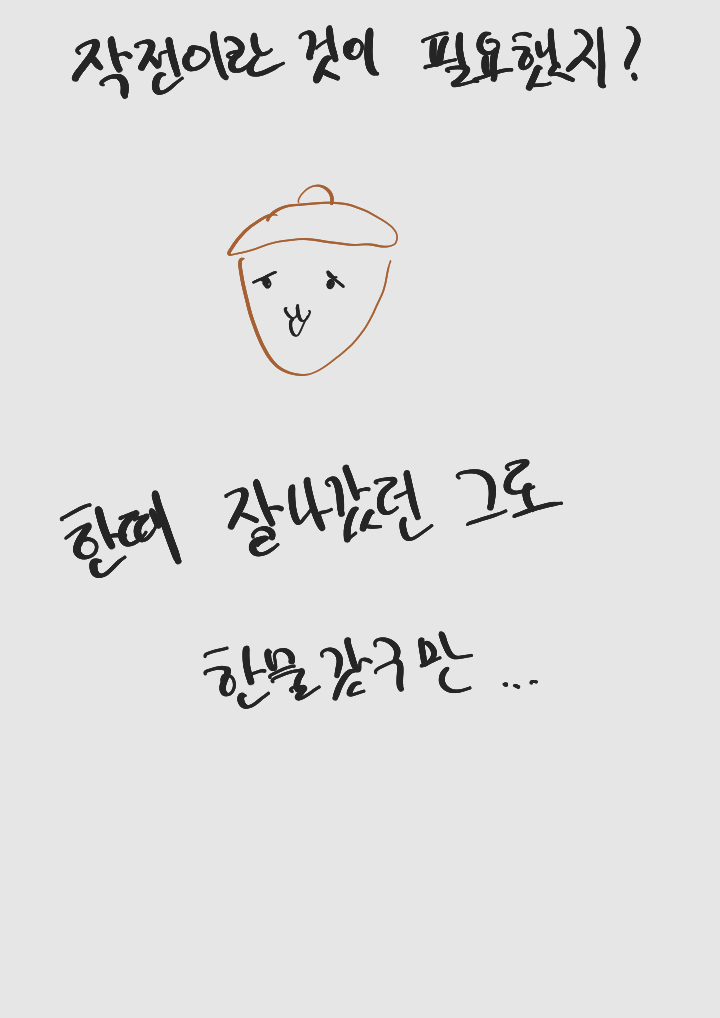 작전이란 것이 필요했지?
한때 잘나갔던 그도
한물 갔구만...